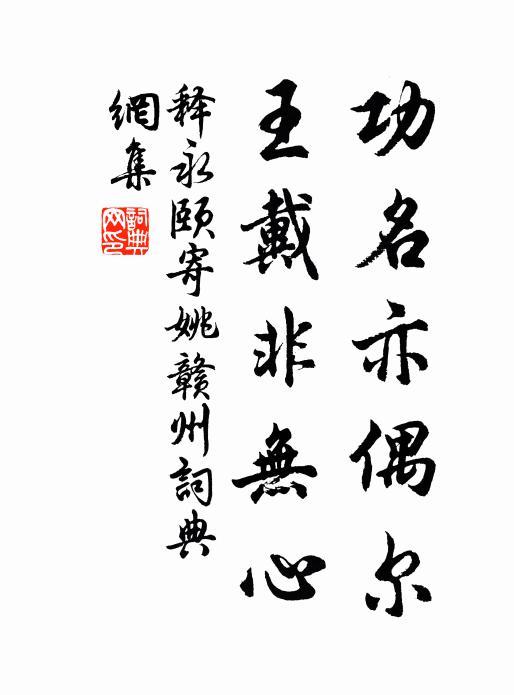 功名亦偶尔
王戴非無心
释永颐寄姚赣州詞典
網集
詞典
网印